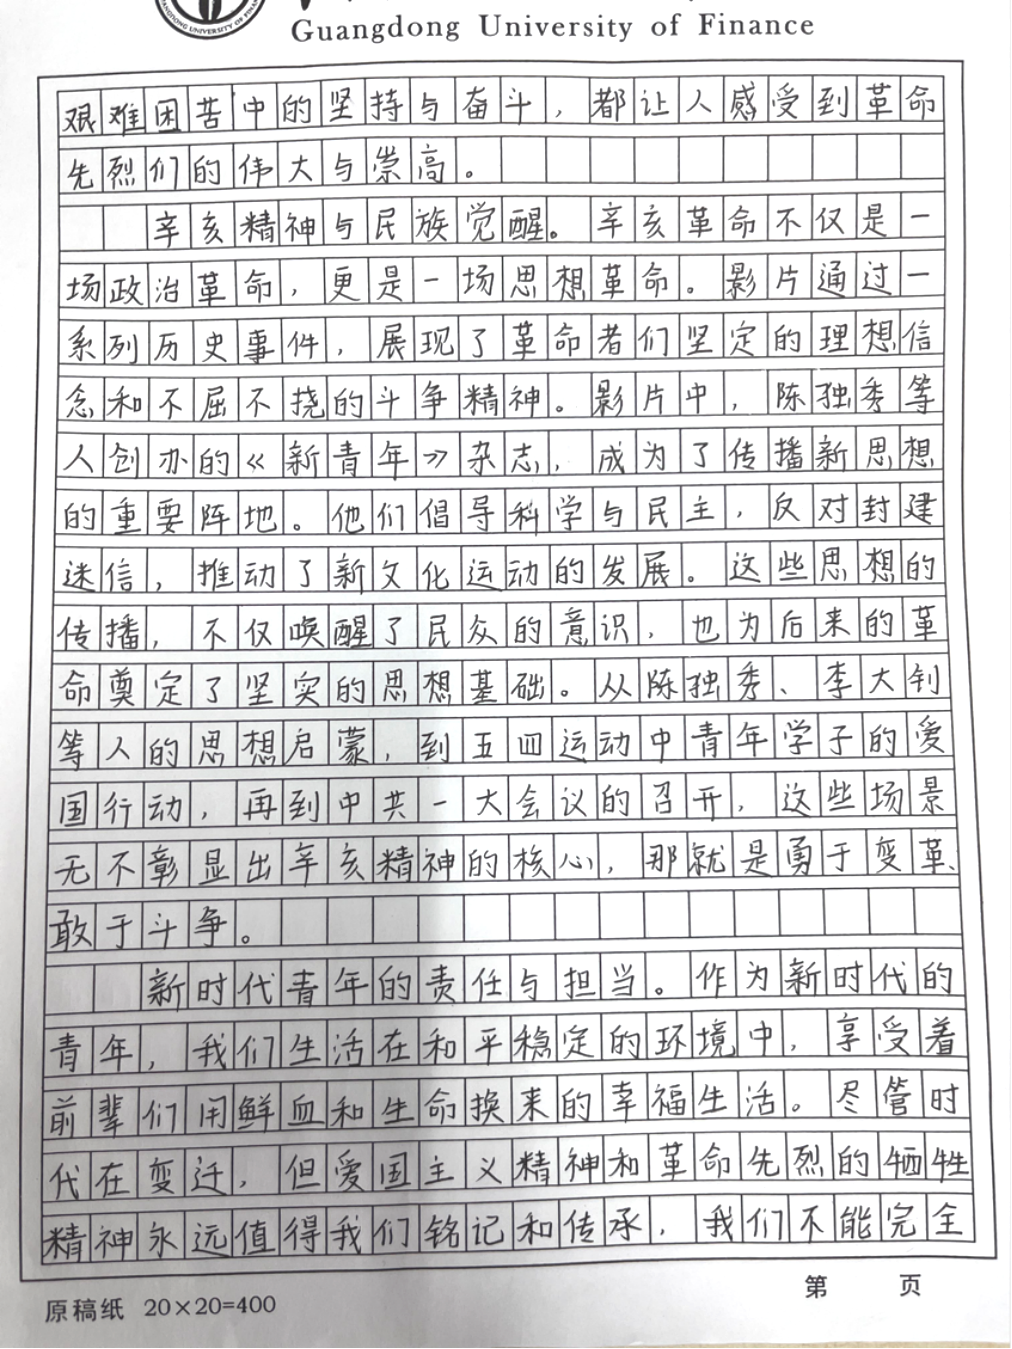 Guangdong University of Finance
艰难困苦中的坚持与奋斗，都让人感受到革命
先烈们的伟大与崇高。
辛亥精神与民族觉醒。辛亥革命不仅是一
场政治革命，更是一场思想革命。影片通过一
系列历史事件，展现了革命者们坚定的理想信
念和不屈不挠的斗争精神。影片中，陈独秀等
人创办的《新青年》杂志，成为了传播新思想
的重要阵地。他们倡导科学与民主，反对封建
迷信，推动了新文化运动的发展。这些思想的
传播，不仅唤醒了民众的意识，也为后来的革
命奠定了坚实的思想基础。从陈独秀、李大钊
等人的思想启蒙，到五四运动中青年学子的爱
国行动，再到中共一大会议的召开，这些场景
无不彰显出辛亥精神的核心，那就是勇于变革、
敢于斗争。
新时代青年的责任与担当。作为新时代的
青年，我们生活在和平稳定的环境中，享受着
前辈们用鲜血和生命换来的幸福生活。尽管时
代在变迁，但爱国主义精神和革命先烈的牺牲
精神永远值得我们铭记和传承，我们不能完全
第 页
原稿纸 20×20=400